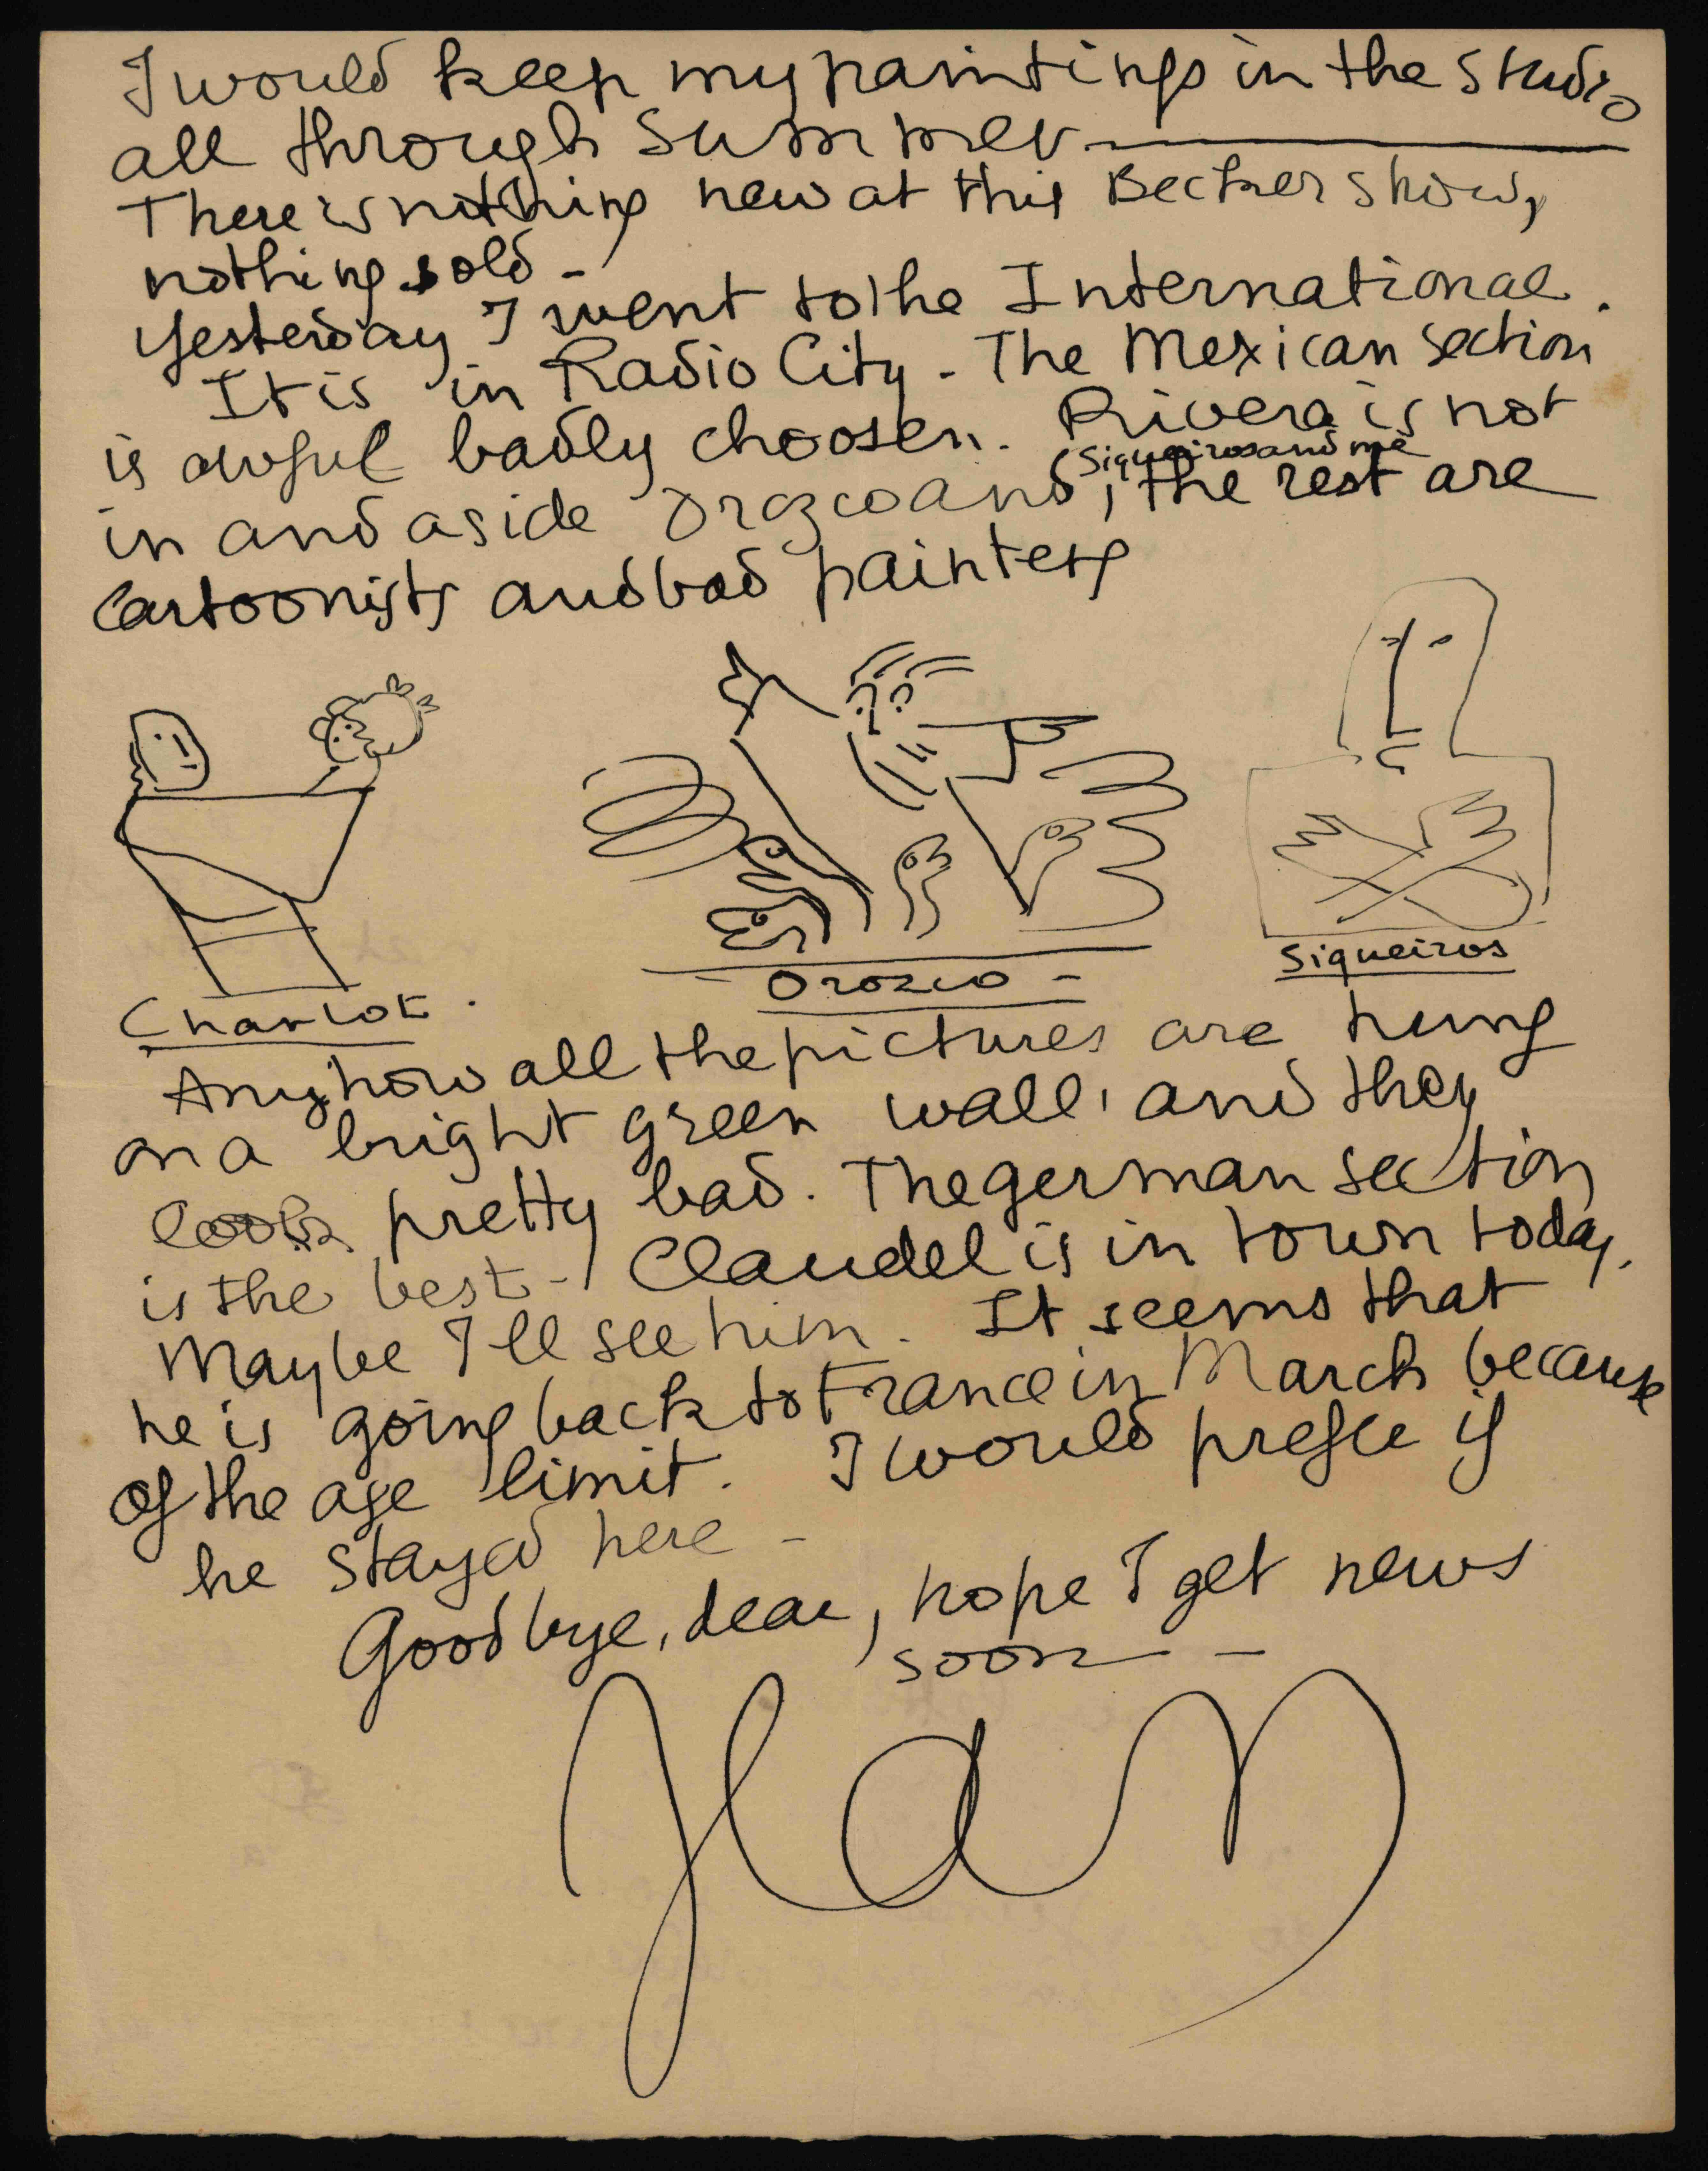 I would keep my paintings in the studio
all through summer
There is nothing new at this Becker show,
nothing sold -
Yesterday I went to the International.
It is in Radio City - The Mexican section
is awful badly choosen. Rivera is not
Siqueiros and me
in and aside Orozco and, the rest are
Cartoonists and bad painters
Charlot.
- Orozco -
Siqueiros
Anyhow all the pictures are hung
on a bright green wall, and they
look pretty bad. The german section
is the best - Claudel is in town today.
Maybe I'll see him. It seems that
he is going back to France in March because
of the age limit. I would prefer if
he stayed here -
Goodbye, dear, hope I get news
soon -
Jean